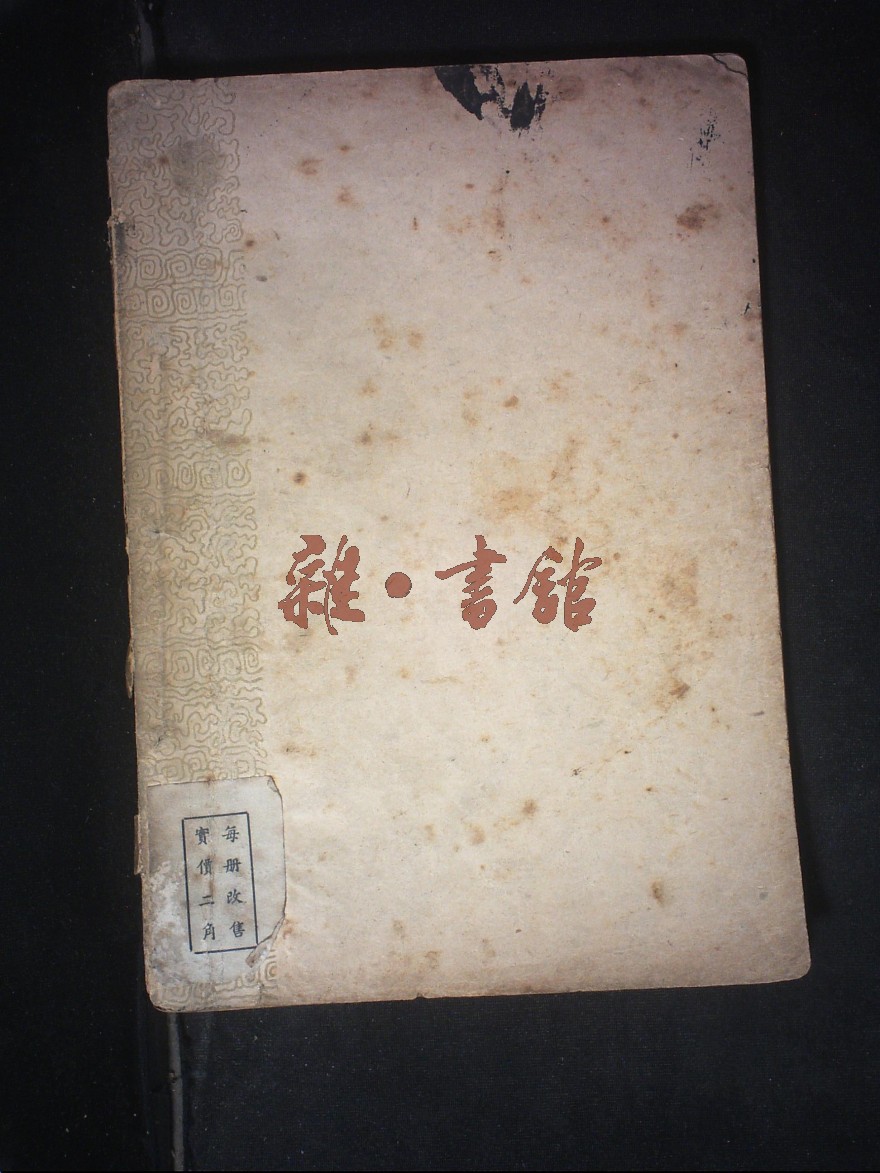 雜・書舘
每册改售
實價二角